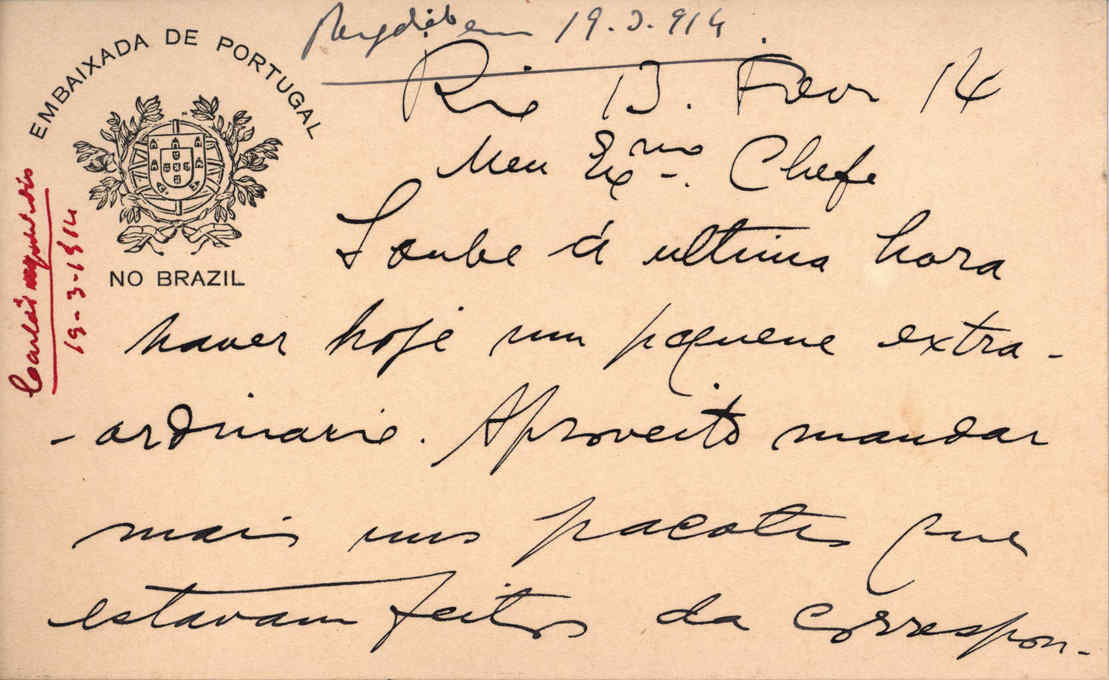 EMBAIXADA DE PORTUGAL
NO BRAZIL
19.3.914.
19-3-1914
Rio 13. Fever 14
Meu Exmo. Chefe
Soube á ultima hora
haver hoje um pequeno extra-
-ordinario. Aproveito mandar
mais uns pacotes que
estavam feitos da correspon-